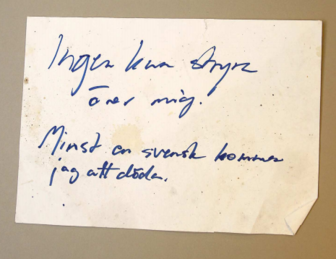 Ingen kan styra
över mig.
Minst en svensk kommer
jag att döda.